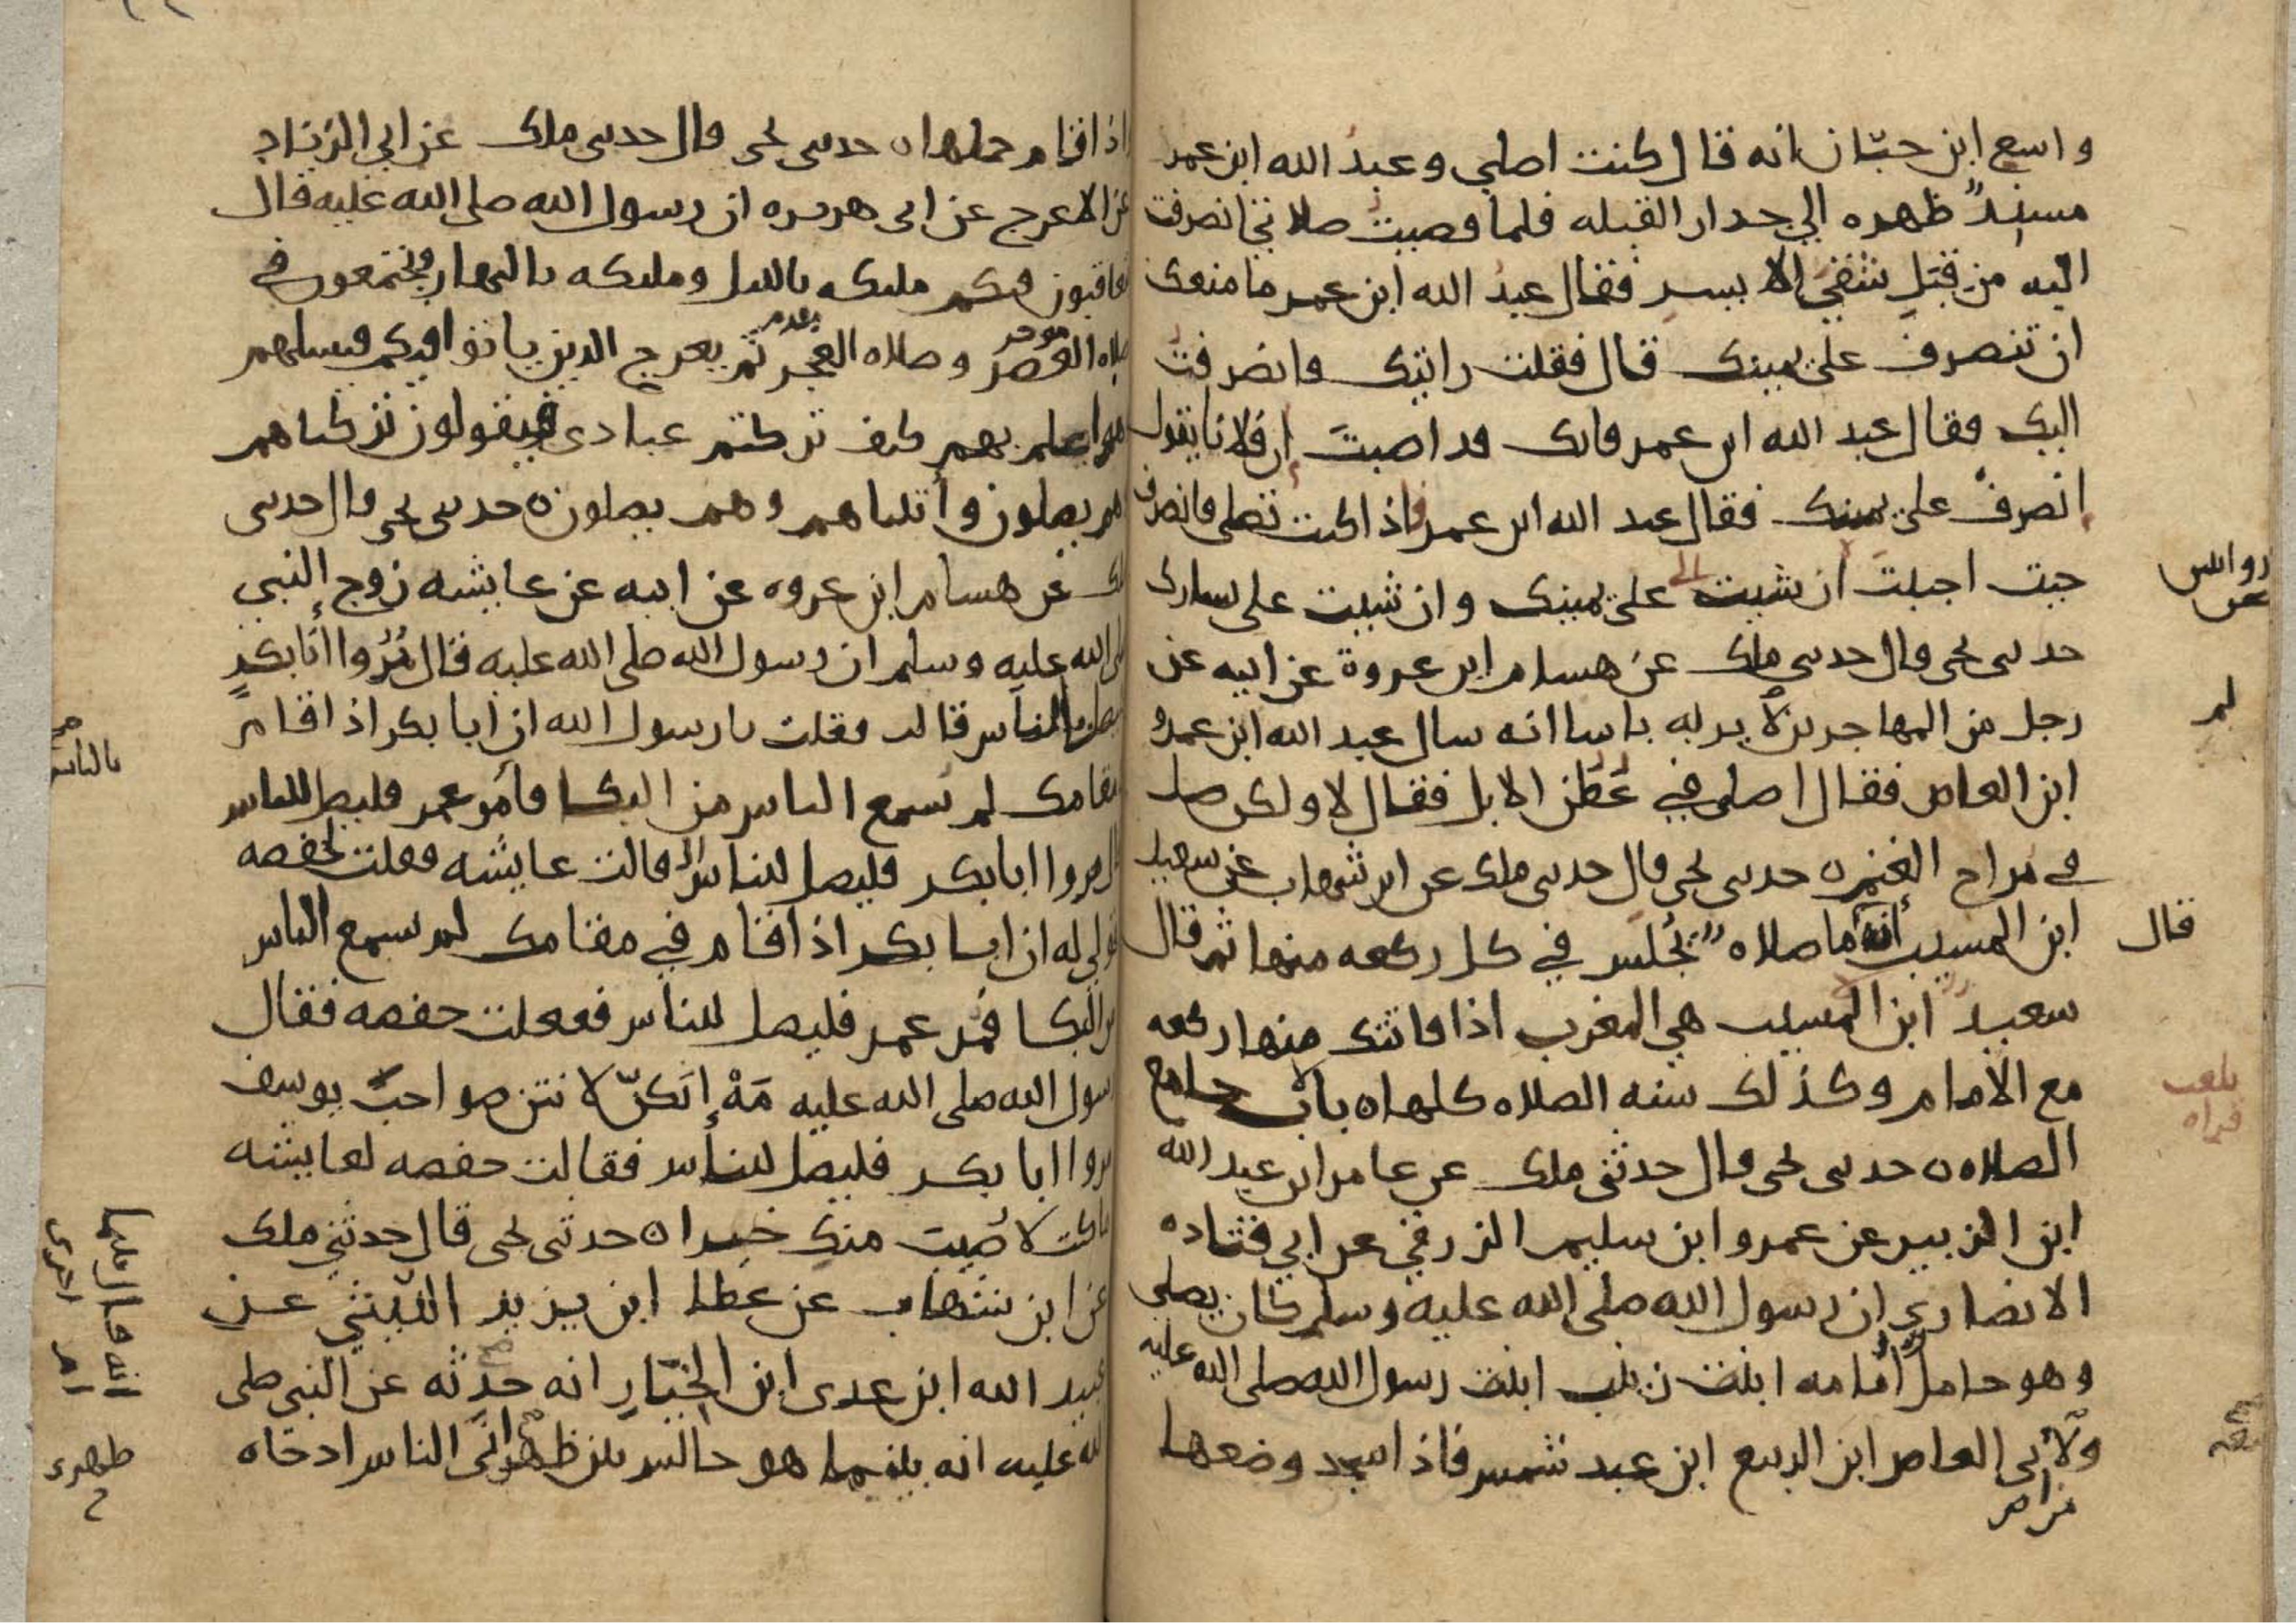 واسع ابن حبّان انه قال كنت اصلي وعبد الله ابن عمر
مسندً ظهره الي جدار القبله فلما قضيت صلاتي انصرفت
اليه من قبل شقي الايسر فقال عبد الله ابن عمر ما منعك
ان تنصرف على يمينك قال فقلت رايتك فانصرفت
اليك فقال عبد الله ابن عمر فانك قد اصبت إن فلانا يقول
إنصرف على يمينك فقال عبد الله ابن عمر فاذا كنت تصلي فانصرف
حيت احببت ان شيت على يمينك وان شيت على يسارك
حدثني يحيى قال حدثني ملك عن هشام ابن عروة عن ابيه عن
رجل من المهاجرين لم ير به باسا انه سال عبد الله ابن عمرو
ابن العاص فقال اصلي في عَطَن الابل فقال لا ولكن صل
في مراح الغنم ه حدثني يحيى قال حدثني ملك عن ابن شهاب عن سعيد
ابن المسيب انه ما صلاه يُجلس في كل ركعه منها ثم قال
سعيد ابن المسيب هي المغرب اذا فاتتك منها ركعه
مع الامام وكذلك سنه الصلاه كلها ه باب جامع
الصلاه ه حدثني يحيى قال حدثني ملك عن عامر ابن عبد الله
ابن الزبير عن عمرو ابن سليم الزرقي عن ابي قتاده
الانصاري ان رسول الله صلى الله عليه وسلم كان يصلي
وهو حامل اُمامه ابنت زينب ابنت رسول الله صلى الله عليه
ولأبي العاص ابن الربيع ابن عبد شمس فاذا سجد وضعها
لم
قال
بلغت
قراه
اذا قام حملها ه حدثني يحيى قال حدثني ملك عن ابي الزناد
عن الاعرج عن ابي هريره ان رسول الله صلى الله عليه قال
يتعاقبون فيكم مليكه بالليل ومليكه بالنهار ويجتمعون في
صلاه العصر وصلاه الفجر ثم يعرج الدين باتوا فيكم فيسلهم
موخر
يقدم
وهو اعلم بهم كيف تركتم عبادي فيقولون تركناهم
وهم يصلون وأتيناهم وهم يصلون ه حدثني يحيى قال حدثني
ملك عن هشام ابن عروه عن ابيه عن عايشه زوج النبي
صلى الله عليه وسلم ان رسول الله صلى الله عليه قال مُرُوا ابا بكرٍ
فليصل بالناس قالت فقلت يا رسول الله ان ابا بكر اذا قام
مقامك لم يسمع الناس من البكا فأمر عمر فليصل للناس
قال مروا ابا بكر فليصل للناس قالت عايشه فقلت لحفصه
قولي له ان ابا بكر اذا قام في مقامك لم يسمع الناس
من البكا فمر عمر فليصل للناس ففعلت حفصه فقال
رسول الله صلى الله عليه مَهْ إنكنّ لانتن صواحبُ يوسف
مروا ابا بكر فليصل للناس فقالت حفصه لعايشه
ما كنت لاُصيب منكِ خيرا ه حدثني يحيى قال حدثني ملك
عن ابن شهاب عن عطا ابن يزيد الليثي عن
عبيد الله ابن عدى ابن الخيار انه حدّثه عن النبي صلى
الله عليه انه بينما هو جالس بين ظهراني الناس اد جاه
بالناس
ظهري